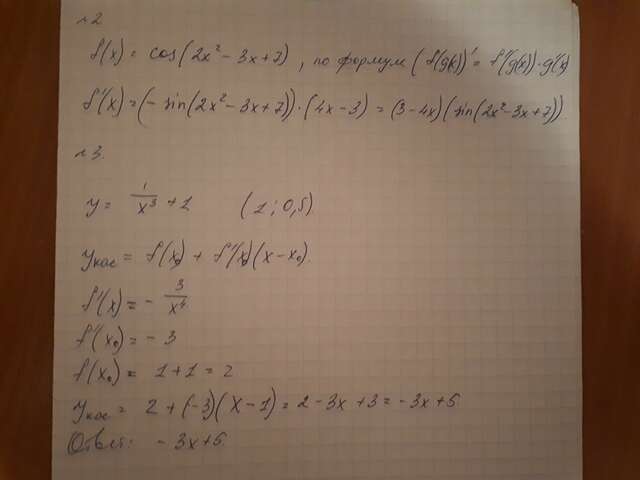 №2
f(x) = cos(2x² - 3x + 7), по формул (f(g(x))' = f'(g(x))·g'(x)
f'(x) = (- sin(2x² - 3x + 7))·(4x - 3) = (3 - 4x)(sin(2x² - 3x + 7)).
№3.
y = 1/x³ + 1 (1; 0,5)
yкас = f(x₀) + f'(x₀)(x - x₀).
f'(x) = - 3/x⁴
f'(x₀) = - 3
f(x₀) = 1 + 1 = 2
yкас = 2 + (-3)(x - 1) = 2 - 3x + 3 = -3x + 5
Ответ: - 3x + 5.